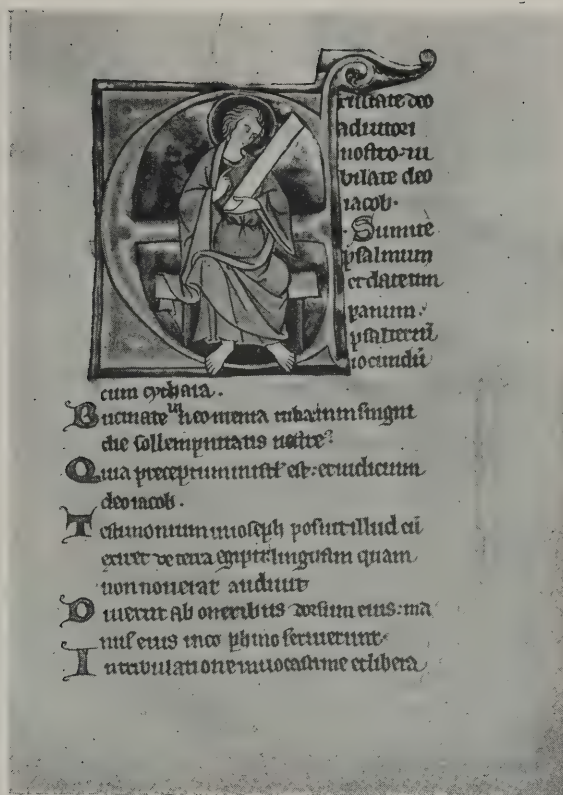 Exultate deo
adiutori
nostro. iu
bilate deo
iacob.
Sumite
psalmum
et date tim
panum.
psalteriū
iocundū
cum cythara.
Bucinate in neomenia tuba. in insigni
die sollempnitatis nostre.
Quia preceptum in isrl' est. et iudicium
deo iacob.
Testimonium in ioseph posuit illud cū
exiret de terra egipti. linguam quam
non nouerat audiuit
Diuertit ab oneribus dorsum eius. ma
nus eius in cophino seruierunt.
In tribulatione inuocasti me et libera